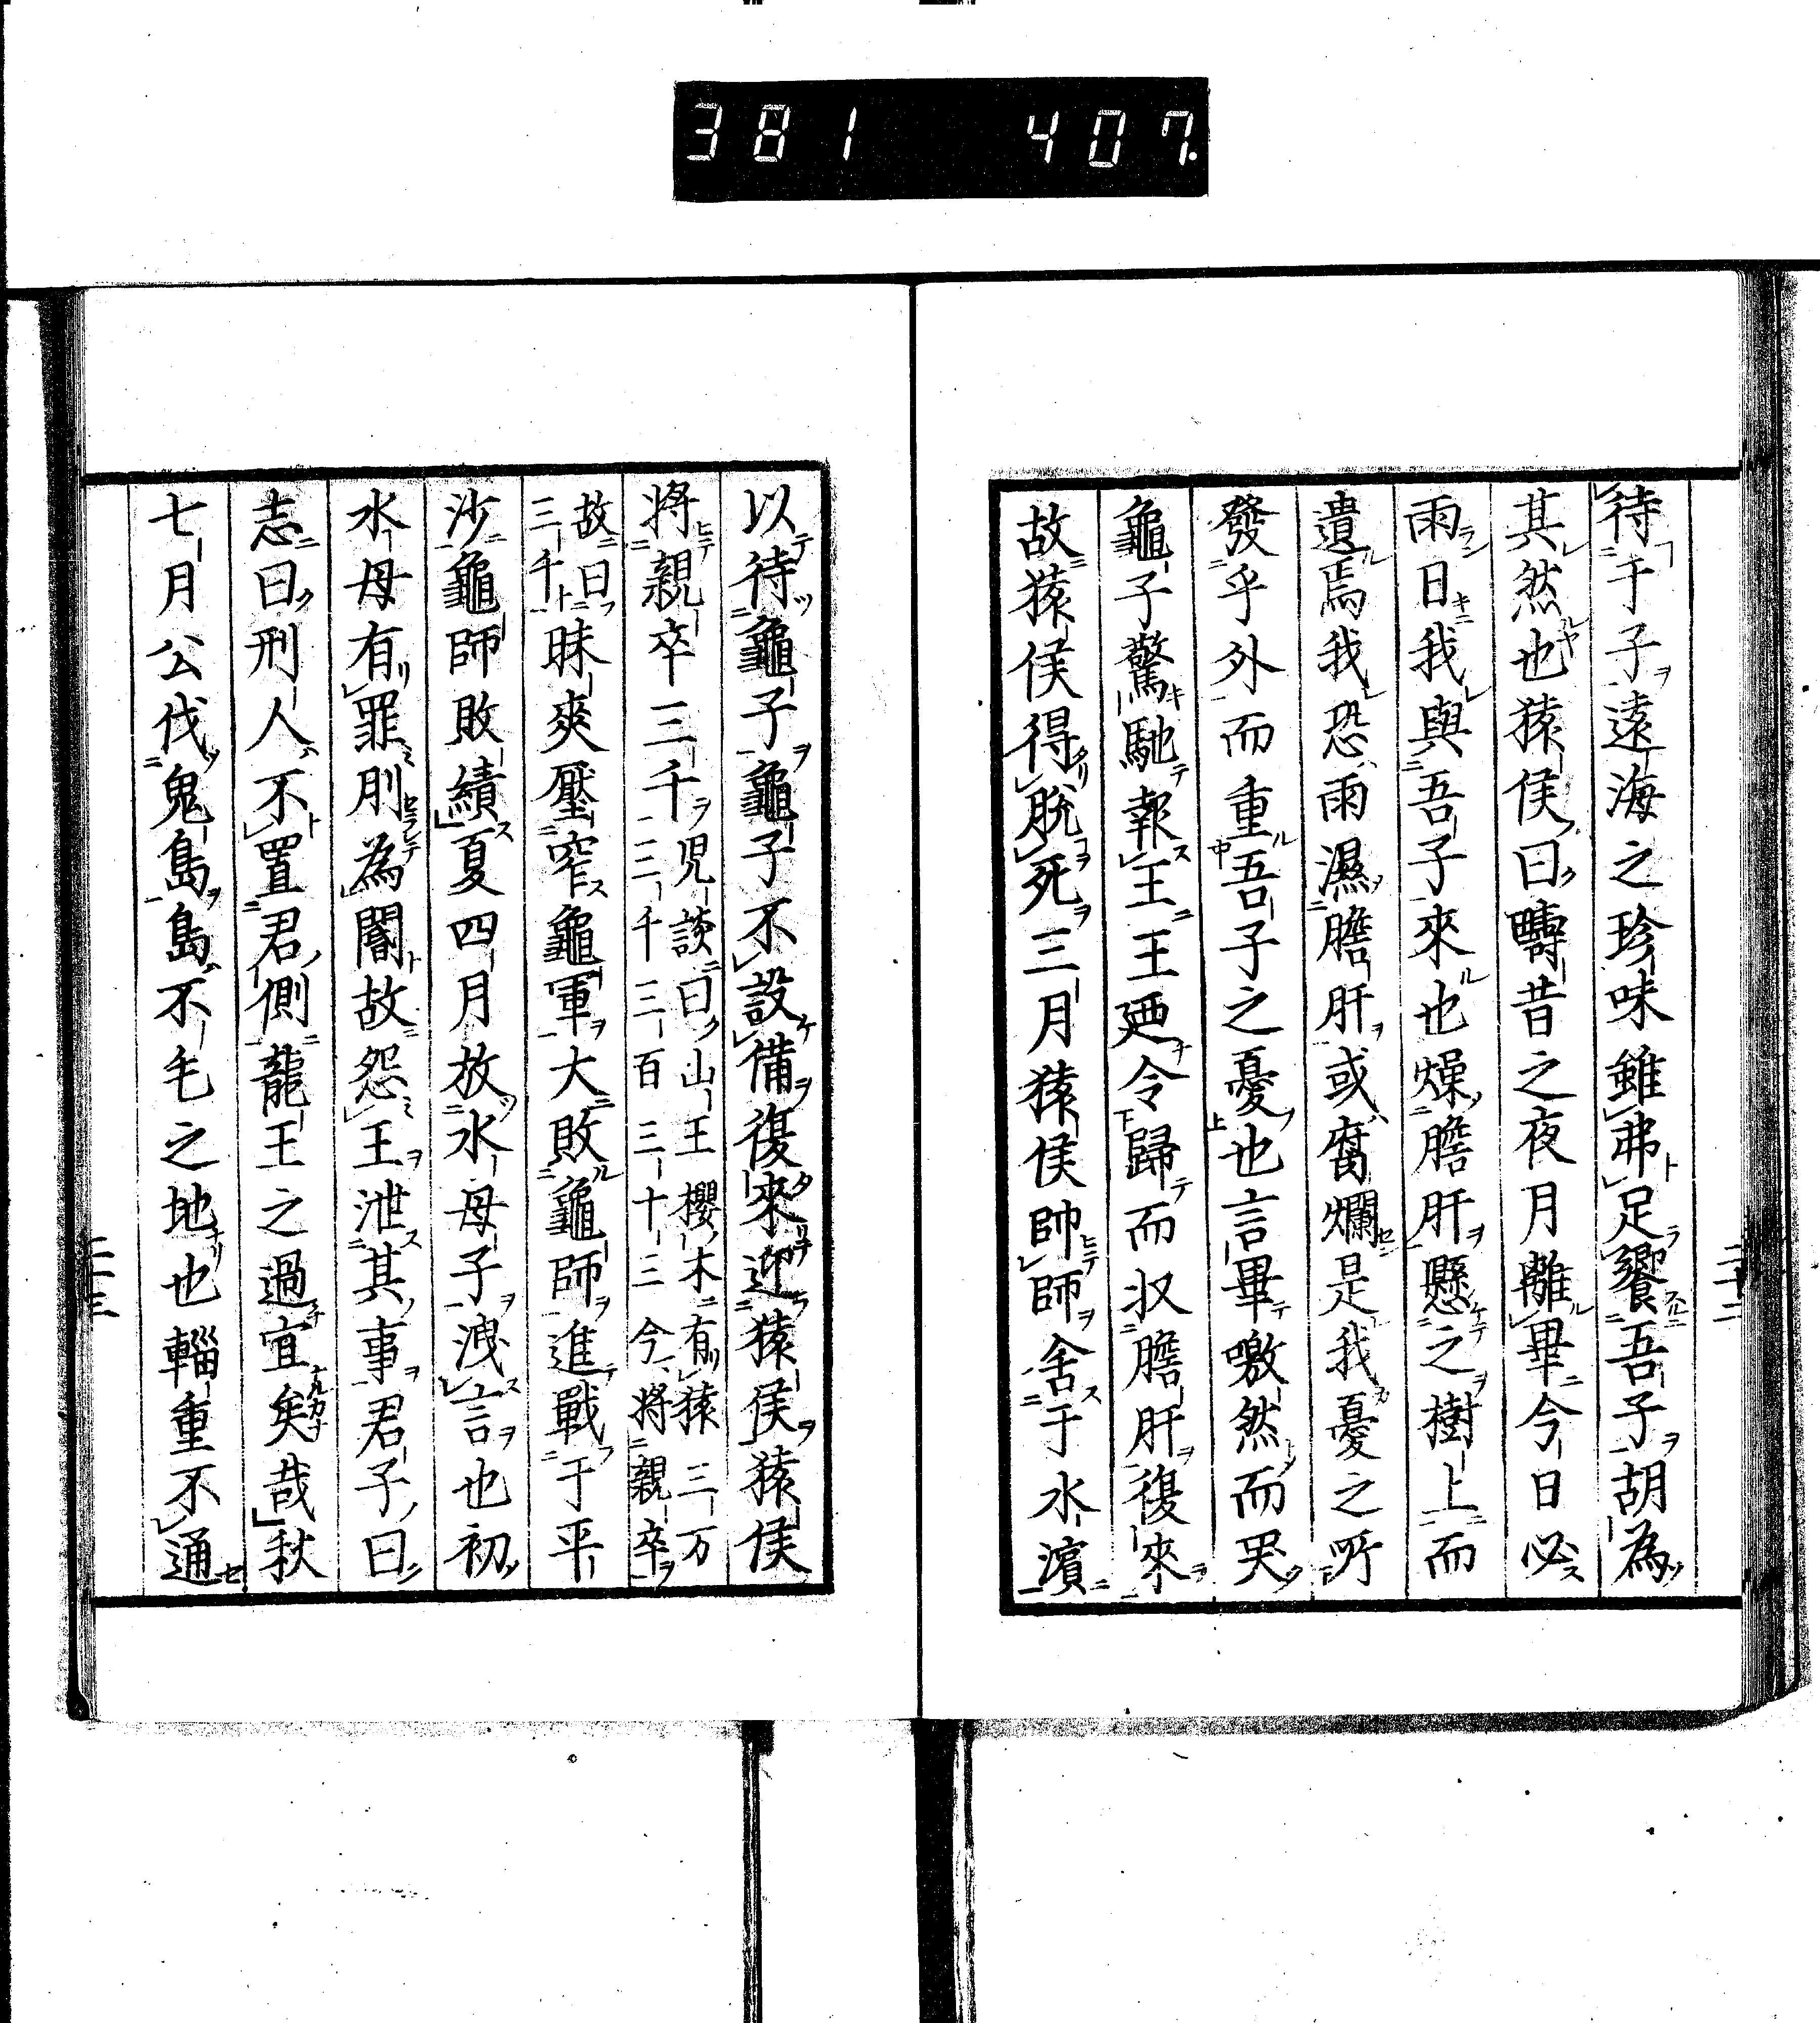 381 407.
待于子遠海之珍味雖弗足饗吾子胡為
其然也猿侯曰疇昔之夜月離畢今日必
雨日我與吾子來也燥膽肝懸之樹上而
遺焉我恐雨濕膽肝或腐爛是我憂之所
發乎外而重吾子之憂也言畢噭然而哭
龜子驚馳報王王廼令歸而収膽肝復來
故猿侯得脫死三月猿侯帥師舍于水濱
二十二
以待龜子龜子不設備復來迎猿侯猿侯
將親卒三千児談曰山王櫻木有猿三万三千三百三十三今將親卒
故曰三千昧爽壓窄龜軍大敗龜師進戰于平
沙龜師敗績夏四月放水母子洩言也初
水母有罪刖為閽故怨王泄其事君子曰
志曰刑人不置君側龍王之過宜矣哉秋
七月公伐鬼島島不毛之地也輜重不通
二十三